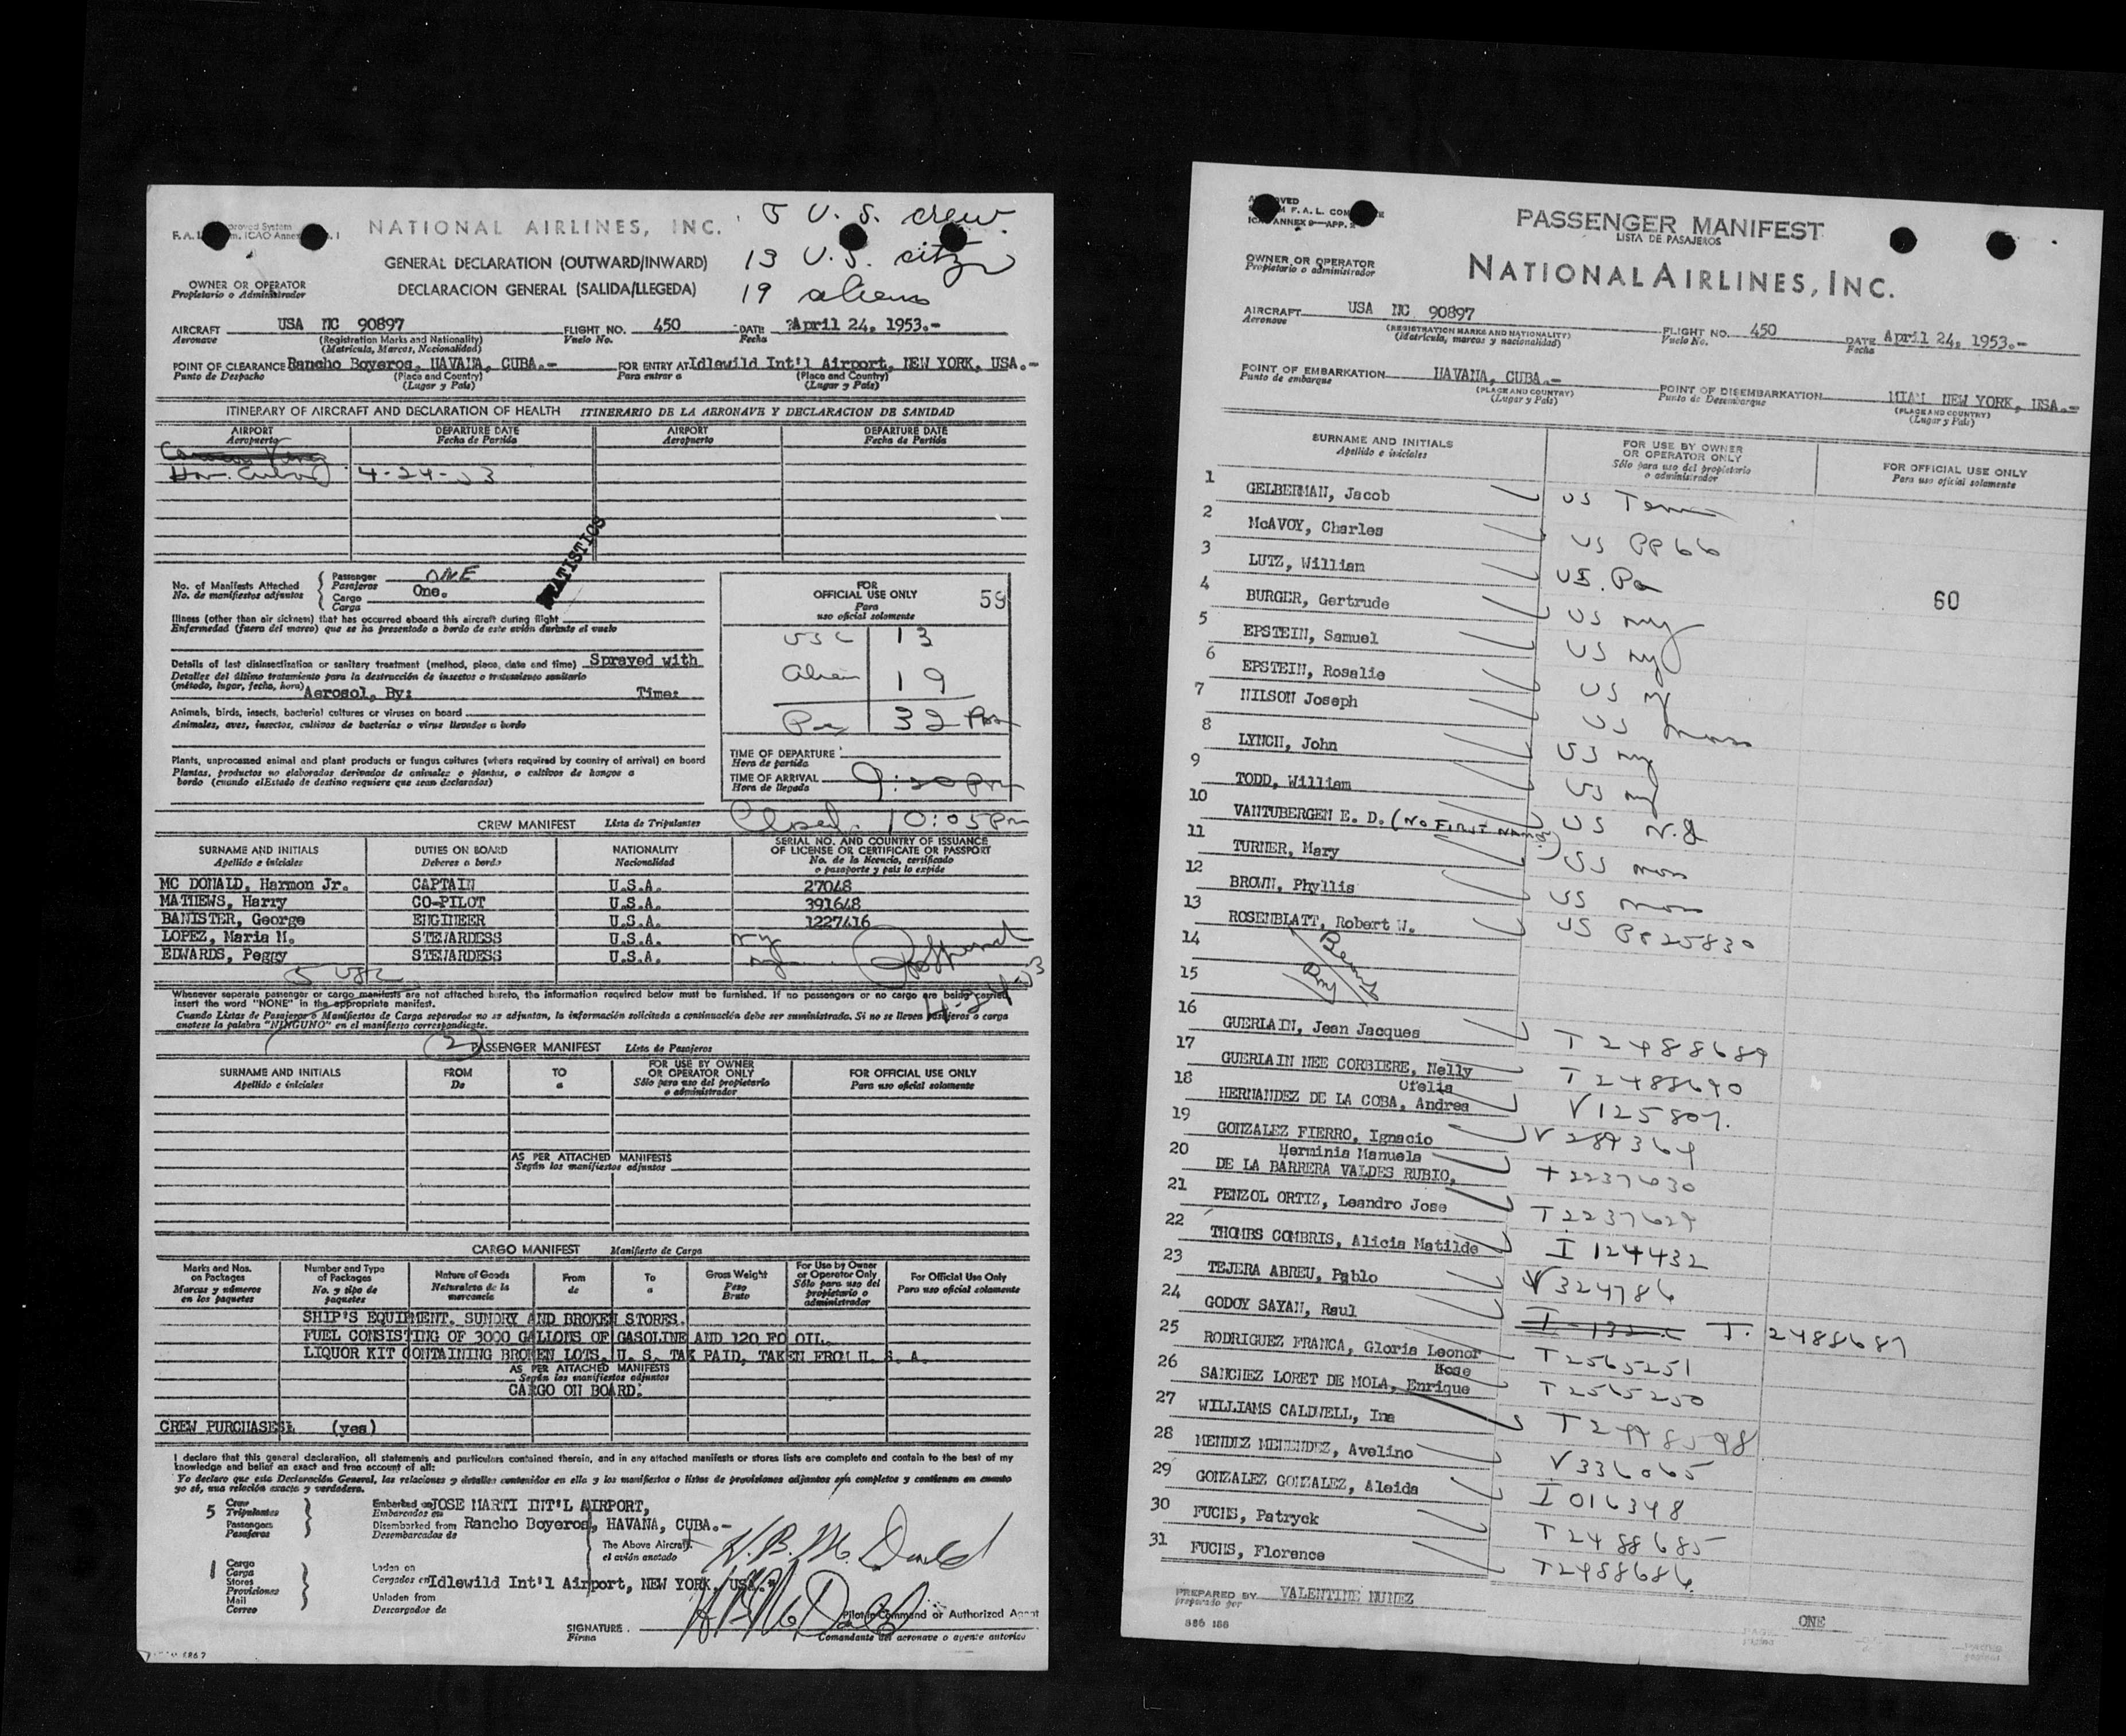 5 U.S. crew.
NATIONAL AIRLINES, INC.
GENERAL DECLARATION (OUTWARD/INWARD)
13 U.S. citzn
DECLARACION GENERAL (SALIDA/LLEGEDA)
19 aliens
OWNER OR OPERATOR
Propietario o Administrador
AIRCRAFT USA NC 90897 FLIGHT NO. 450 DATE April 24, 1953.-
Aeronave (Registration Marks and Nationality) Vuelo No. Fecha
(Matricula, Marcas, Nacionalidad)
POINT OF CLEARANCE Rancho Boyeros, HAVANA, CUBA.- FOR ENTRY AT Idlewild Int'l Airport, NEW YORK, USA.-
Punto de Despacho (Place and Country) Para entrar a (Place and Country)
(Lugar y Pais) (Lugar y Pais)
ITINERARY OF AIRCRAFT AND DECLARATION OF HEALTH ITINERARIO DE LA AERONAVE Y DECLARACION DE SANIDAD
AIRPORT DEPARTURE DATE AIRPORT DEPARTURE DATE
Aeropuerto Fecha de Partida Aeropuerto Fecha de Partida
Hav. Cuba 4-24-53
STATISTICS
No. of Manifests Attached Passenger ONE
No. de manifiestos adjuntos Pasajeros
Cargo One.
Carga
Illness (other than air sickness) that has occurred aboard this aircraft during flight
Enfermedad (fuera del mareo) que se ha presentado a bordo de este avión durante el vuelo
Details of last disinsectization or sanitary treatment (method, place, date and time) Sprayed with
Detalles del último tratamiento para la destrucción de insectos o tratamiento sanitario
(método, lugar, fecha, hora) Aerosol, By: Time:
Animals, birds, insects, bacterial cultures or viruses on board
Animales, aves, insectos, cultivos de bacterias o virus llevados a bordo
Plants, unprocessed animal and plant products or fungus cultures (where required by country of arrival) on board
Plantas, productos no elaborados derivados de animales o plantas, o cultivos de hongos a
bordo (cuando el Estado de destino requiere que sean declarados)
FOR
OFFICIAL USE ONLY 59
Para
uso oficial solamente
USC 13
Alien 19
32
TIME OF DEPARTURE
Hora de partida
TIME OF ARRIVAL 9:20 pm
Hora de llegada
Closed 10:05 pm
CREW MANIFEST Lista de Tripulantes
SURNAME AND INITIALS DUTIES ON BOARD NATIONALITY SERIAL NO. AND COUNTRY OF ISSUANCE
OF LICENSE OR CERTIFICATE OR PASSPORT
Apellido e iniciales Deberes a bordo Nacionalidad No. de la licencia, certificado
o pasaporte y pais lo expide
MC DONALD, Harmon Jr. CAPTAIN U.S.A. 27048
MATHEWS, Harry CO-PILOT U.S.A. 391648
BANISTER, George ENGINEER U.S.A. 1227416
LOPEZ, Maria M. STEWARDESS U.S.A. ny
EDWARDS, Peggy STEWARDESS U.S.A. ny
5 USC
4-24-53
Whenever separate passenger or cargo manifests are not attached hereto, the information required below must be furnished. If no passengers or no cargo are being carried
insert the word "NONE" in the appropriate manifest.
Cuando Listas de Pasajeros o Manifiestos de Carga separados no se adjuntan, la información solicitada a continuación debe ser suministrada. Si no se lleven pasajeros o carga
anotese la palabra "NINGUNO" en el manifiesto correspondiente.
2 PASSENGER MANIFEST Lista de Pasajeros
SURNAME AND INITIALS FROM TO FOR USE BY OWNER OR OPERATOR ONLY FOR OFFICIAL USE ONLY
Apellido e iniciales De a Sólo para uso del propietario o administrador Para uso oficial solamente
AS PER ATTACHED MANIFESTS
Según los manifiestos adjuntos
CARGO MANIFEST Manifiesto de Carga
Marks and Nos. on Packages Number and Type of Packages Nature of Goods From To Gross Weight For Use by Owner or Operator Only For Official Use Only
Marcas y números en los paquetes No. y tipo de paquetes Naturaleza de la mercancía de a Peso Bruto Sólo para uso del propietario o administrador Para uso oficial solamente
SHIP'S EQUIPMENT. SUNDRY AND BROKEN STORES.
FUEL CONSISTING OF 3000 GALLONS OF GASOLINE AND 120 FO OIL.
LIQUOR KIT CONTAINING BROKEN LOTS, U. S. TAX PAID, TAKEN FROM U. S. A.
AS PER ATTACHED MANIFESTS
Según los manifiestos adjuntos
CARGO ON BOARD.
CREW PURCHASES: (yes)
I declare that this general declaration, all statements and particulars contained therein, and in any attached manifests or stores lists are complete and contain to the best of my
knowledge and belief an exact and true account of all:
Yo declaro que esta Declaración General, las relaciones y detalles contenidos en ella y los manifiestos o listas de provisiones adjuntos son completos y contienen en cuanto
yo sé, una relación exacta y verdadera.
5 Crew Embarked on JOSE MARTI INT'L AIRPORT,
Tripulantes Embarcados en
Passengers Disembarked from Rancho Boyeros, HAVANA, CUBA.-
Pasajeros Desembarcados de
The Above Aircraft
el avión anotado
H. B. Mc Donald
1 Cargo Laden on
Carga Cargados en Idlewild Int'l Airport, NEW YORK, USA.
Stores
Provisiones Unladen from
Mail Descargados de
Correo
H B Mc Donald
Pilot in Command or Authorized Agent
SIGNATURE
Firma Comandante del aeronave o agente autorizo
PASSENGER MANIFEST
LISTA DE PASAJEROS
OWNER OR OPERATOR
Propietario o administrador
NATIONAL AIRLINES, INC.
AIRCRAFT USA NC 90897 FLIGHT NO. 450 DATE April 24, 1953.-
Aeronave (REGISTRATION MARKS AND NATIONALITY) Vuelo No. Fecha
(Matricula, marcas y nacionalidad)
POINT OF EMBARKATION HAVANA, CUBA.- POINT OF DISEMBARKATION MIAM NEW YORK, USA.-
Punto de embarque (PLACE AND COUNTRY) Punto de Desembarque (PLACE AND COUNTRY)
(Lugar y Pais) (Lugar y Pais)
SURNAME AND INITIALS FOR USE BY OWNER OR OPERATOR ONLY FOR OFFICIAL USE ONLY
Apellido e iniciales Sólo para uso del propietario o administrador Para uso oficial solamente
1 GELBERMAN, Jacob US Tenn
2 McAVOY, Charles US PP 66
3 LUTZ, William US. Pa
60
4 BURGER, Gertrude US ny
5 EPSTEIN, Samuel US ny
6 EPSTEIN, Rosalie US ny
7 NILSON Joseph US mass
8 LYNCH, John US ny
9 TODD, William US ny
10 VANTUBERGEN E. D. (NO FIRST NAME) US N.J
11 TURNER, Mary US mass
12 BROWN, Phyllis US mass
13 ROSENBLATT, Robert W. US PP 25830
14
15
16 GUERLAIN, Jean Jacques T 2488689
17 GUERLAIN NEE CORBIERE, Nelly T 2488690
Ofelia
18 HERNANDEZ DE LA COBA, Andrea V 125807.
19 GONZALEZ FIERRO, Ignacio V 289369
Herminia Manuela
20 DE LA BARRERA VALDES RUBIO, T 2237630
21 PENZOL ORTIZ, Leandro Jose T 2237629
22 THOMBS COMBRIS, Alicia Matilde I 124432
23 TEJERA ABREU, Pablo V 324786
24 GODOY SAYAN, Raul T. 2488687
25 RODRIGUEZ FRANCA, Gloria Leonor T 2565251
Jose
26 SANCHEZ LORET DE MOLA, Enrique T 2565250
27 WILLIAMS CALDWELL, Ina T 2498598
28 MENDEZ MENENDEZ, Avelino V 336065
29 GONZALEZ GONZALEZ, Aleida I 016348
30 FUCHS, Patryck T 2488685
31 FUCHS, Florence T 2488686
PREPARED BY VALENTINE NUNEZ
preparado por
886 188
ONE